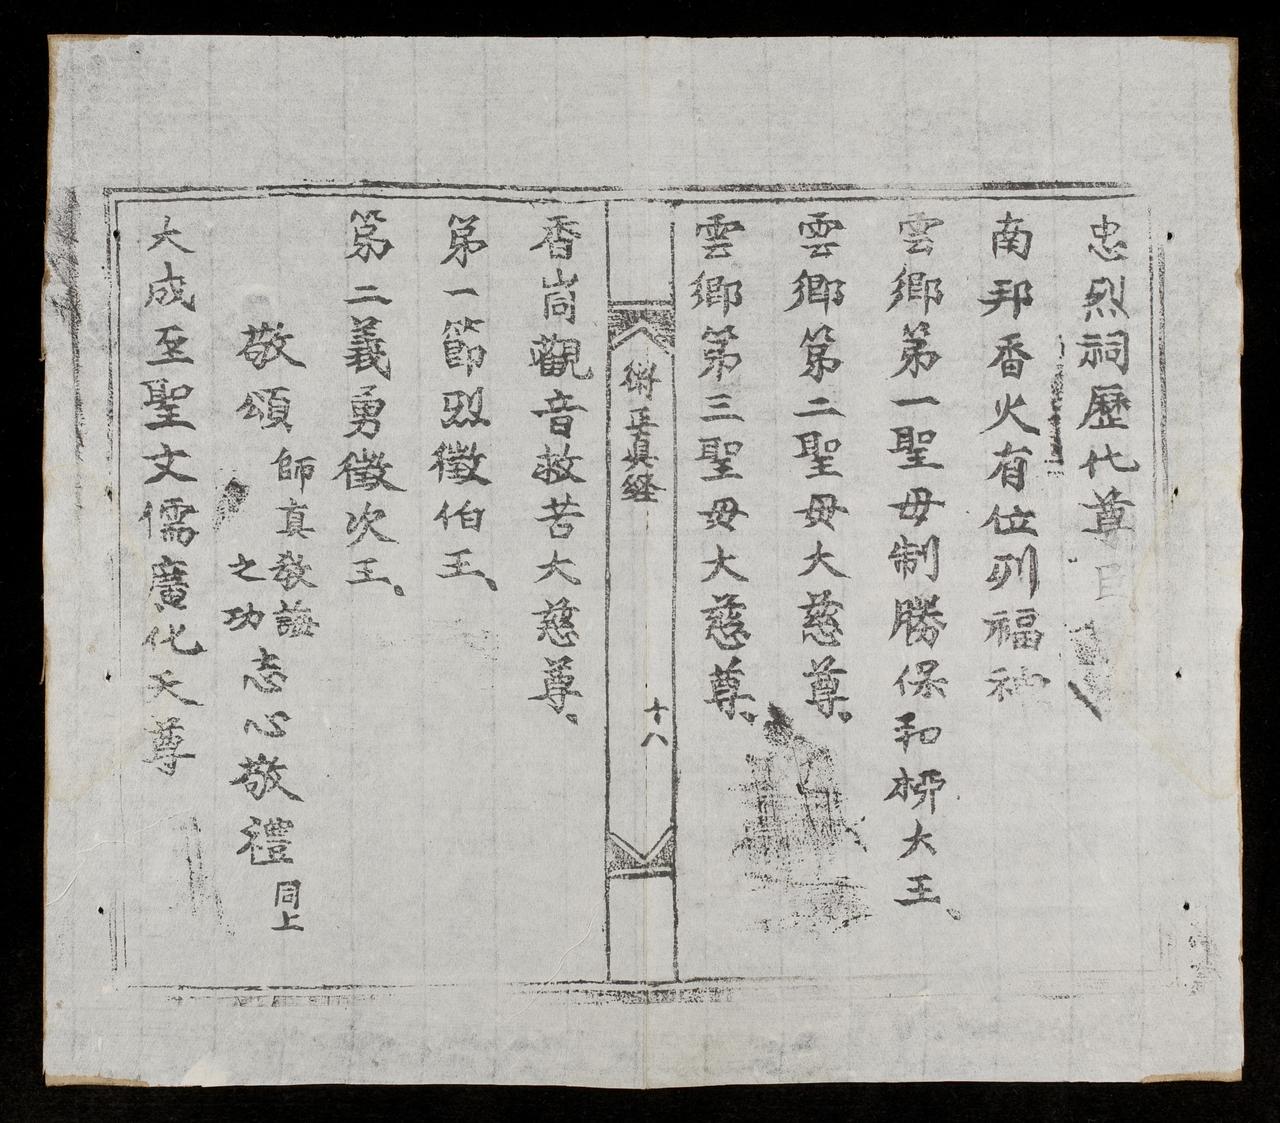 忠烈祠歷代尊
南邦香火有位列福神
雲鄉第一聖母制勝保和柳大王、
雲鄉第二聖母大慈尊、
雲鄉第三聖母大慈尊、
正真經
十八
香峝觀音救苦大慈尊、
第一節烈徵伯王、
第二義勇徵次王、
敬頌師真教誨之功志心敬禮同上
大成至聖文儒廣化天尊